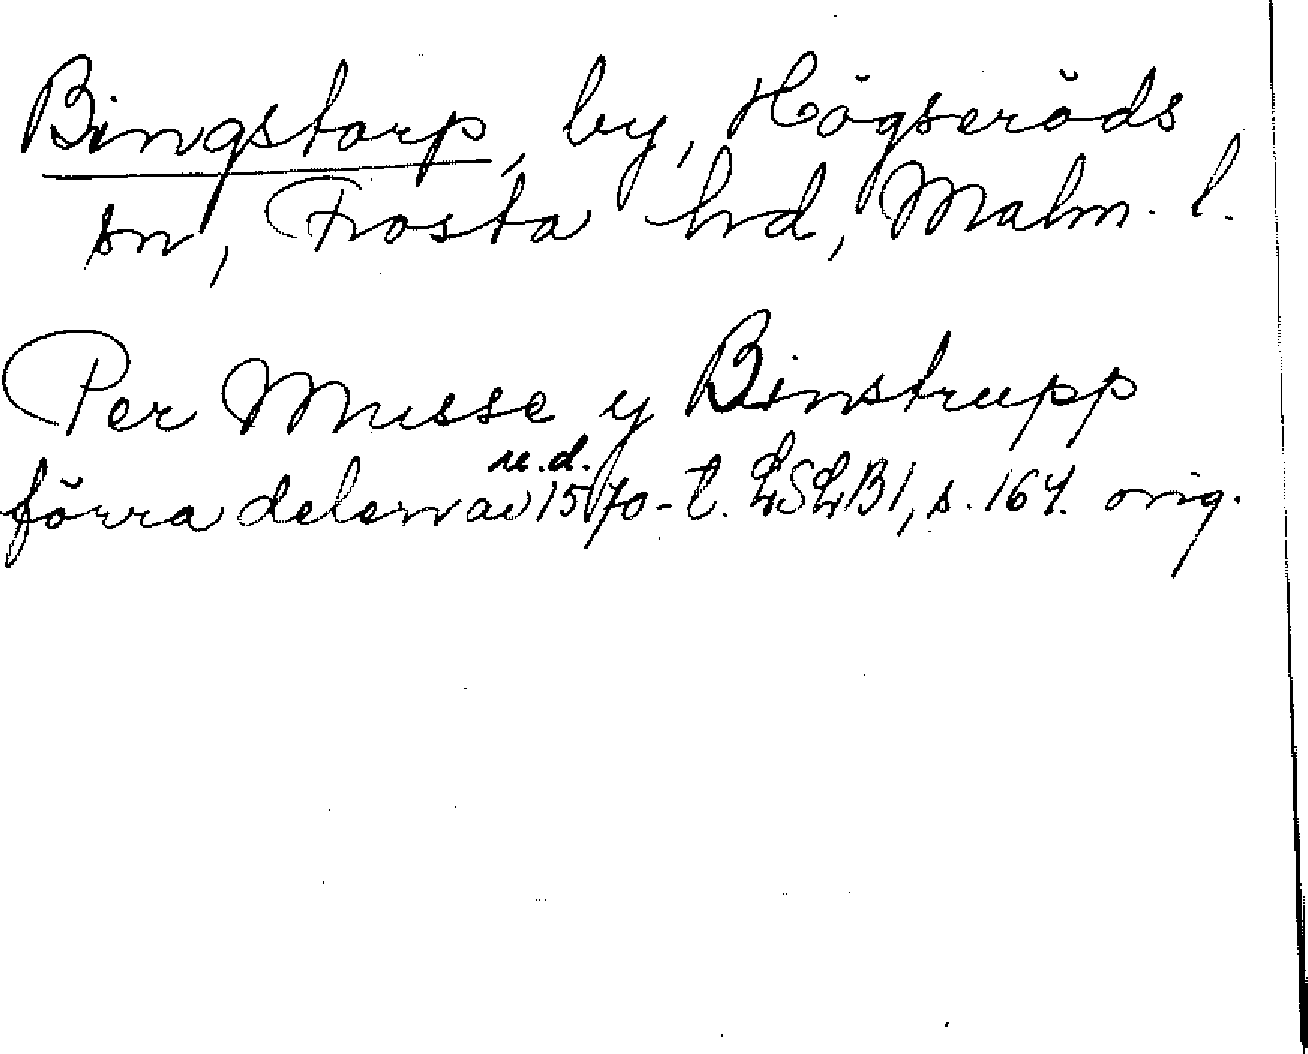 Bingstorp, by, Högseröds
sn, Frosta hd, Malm. l.
Per Musse y Binstrupp
u.d.
förra delen av 1570-t. LSLB1, s. 164. orig.